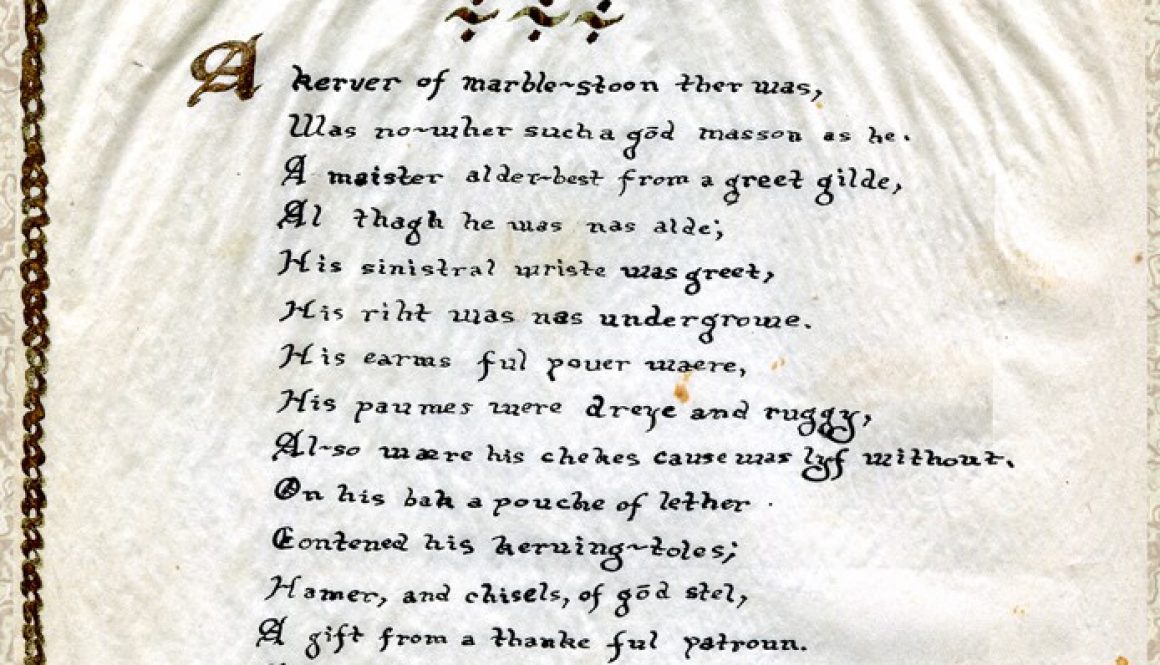 A kerver of marble~stoon ther was,
Was no~wher such a gōd masson as he.
A maister alder-best from a greet gilde,
Al thagh he was nas alde;
His sinistral wriste was greet,
His riht was nas undergrowe.
His earms ful pouer wære,
His paumes were dreye and ruggy,
Al-so wære his chekes cause was lyf without.
On his bak a pouche of lether
Contened his kerving~toles;
Hamer, and chisels, of gōd stel,
A gift from a thanke ful patroun.